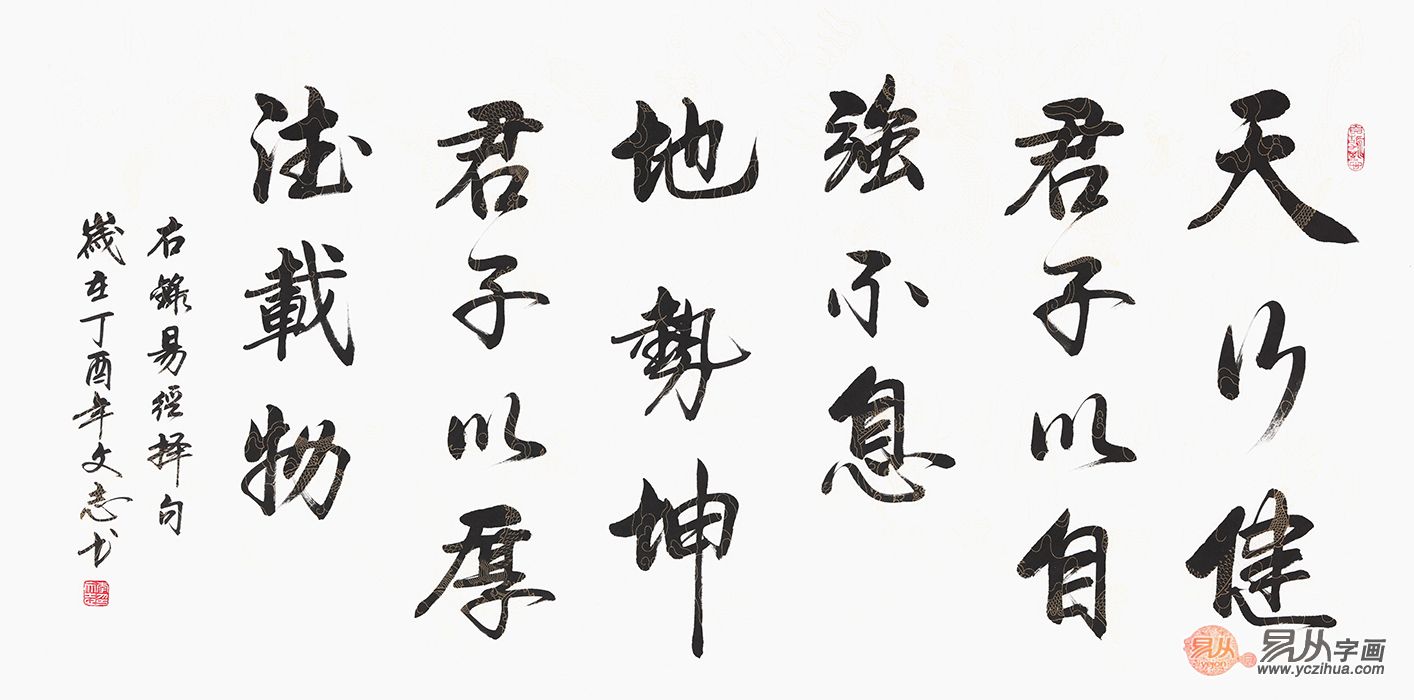 天行健
君子以自
強不息
地勢坤
君子以厚
德載物
右錄易經擇句
歲在丁酉年文志书
易从字画
www.yczihua.com
易从
yicon